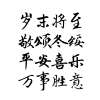 岁末将至
敬颂冬绥
平安喜乐
万事胜意